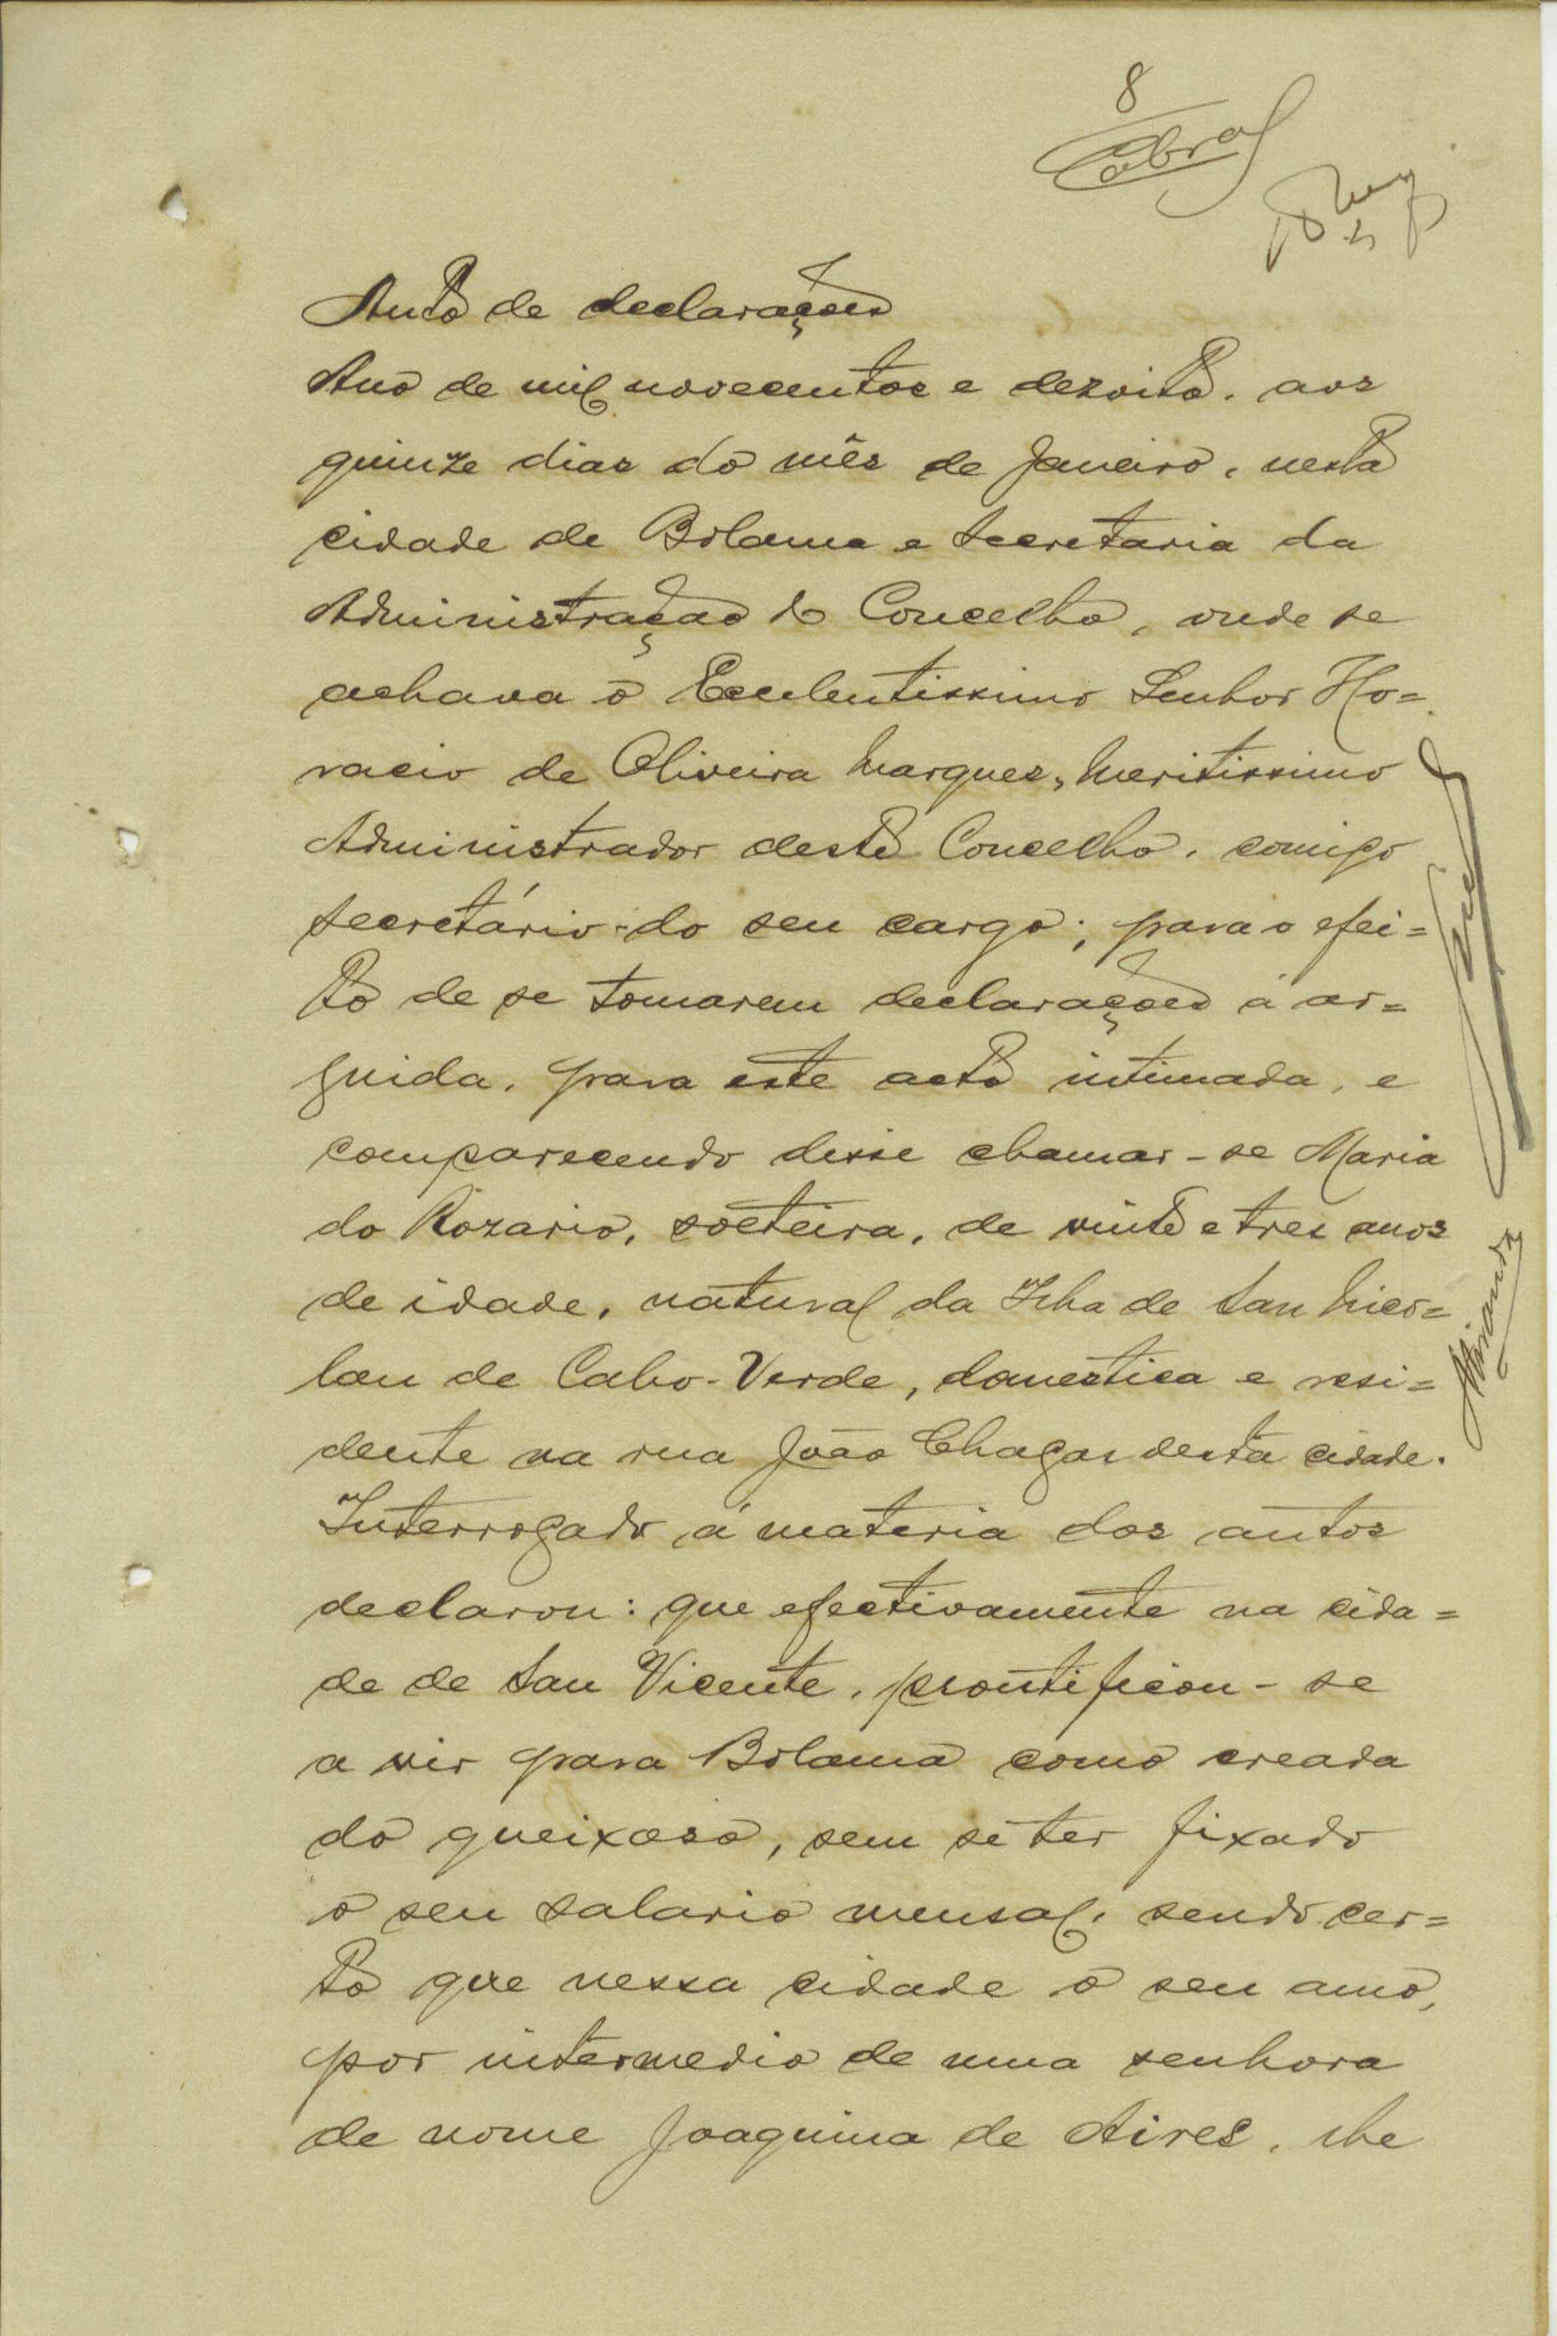 8
Cabral
Auto de declarações
Ano de mil novecentos e dezoito, aos
quinze dias do mês de Janeiro, nesta
cidade de Bolama e Secretaria da
Administração do Concelho, onde se
achava o Excelentissimo Senhor Ho=
racio de Oliveira Marques, Meritissimo
Administrador deste Concelho, comigo
secretário do seu cargo; para o efei=
to de se tomarem declarações á ar=
guida, para este acto intimada, e
comparecendo disse chamar-se Maria
do Rozario, solteira, de vinte e tres anos
de idade, natural da Ilha de San Nico=
lau de Cabo-Verde, domestica e resi=
dente na rua João Chagas desta cidade.
Interrogado á materia dos autos
declarou: que efectivamente na cida=
de de San Vicente, prontificou-se
a vir para Bolama como creada
do queixoso, sem se ter fixado
o seu salario mensal, sendo cer=
to que nessa cidade o seu amo,
por intermedio de uma senhora
de nome Joaquina de Aires, lhe
Miranda